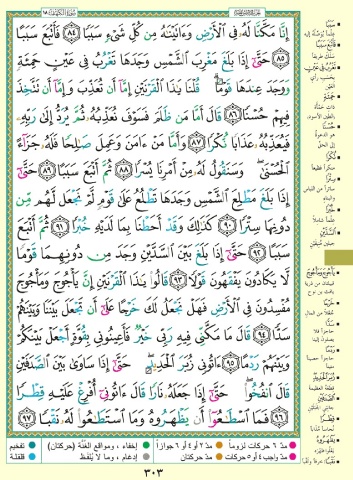 إِنَّا مَكَّنَّا لَهُۥ فِى ٱلْأَرْضِ وَءَاتَيْنَٰهُ مِن كُلِّ شَىْءٍ سَبَبًا ﴿٨٤﴾ فَأَتْبَعَ سَبَبًا
﴿٨٥﴾ حَتَّىٰٓ إِذَا بَلَغَ مَغْرِبَ ٱلشَّمْسِ وَجَدَهَا تَغْرُبُ فِى عَيْنٍ حَمِئَةٍ
وَوَجَدَ عِندَهَا قَوْمًا ۗ قُلْنَا يَٰذَا ٱلْقَرْنَيْنِ إِمَّآ أَن تُعَذِّبَ وَإِمَّآ أَن تَتَّخِذَ
فِيهِمْ حُسْنًا ﴿٨٦﴾ قَالَ أَمَّا مَن ظَلَمَ فَسَوْفَ نُعَذِّبُهُۥ ثُمَّ يُرَدُّ إِلَىٰ رَبِّهِۦ
فَيُعَذِّبُهُۥ عَذَابًا نُّكْرًا ﴿٨٧﴾ وَأَمَّا مَنْ ءَامَنَ وَعَمِلَ صَٰلِحًا فَلَهُۥ جَزَآءً
ٱلْحُسْنَىٰ ۖ وَسَنَقُولُ لَهُۥ مِنْ أَمْرِنَا يُسْرًا ﴿٨٨﴾ ثُمَّ أَتْبَعَ سَبَبًا ﴿٨٩﴾ حَتَّىٰٓ
إِذَا بَلَغَ مَطْلِعَ ٱلشَّمْسِ وَجَدَهَا تَطْلُعُ عَلَىٰ قَوْمٍ لَّمْ نَجْعَل لَّهُم مِّن
دُونِهَا سِتْرًا ﴿٩٠﴾ كَذَٰلِكَ وَقَدْ أَحَطْنَا بِمَا لَدَيْهِ خُبْرًا ﴿٩١﴾ ثُمَّ أَتْبَعَ
سَبَبًا ﴿٩٢﴾ حَتَّىٰٓ إِذَا بَلَغَ بَيْنَ ٱلسَّدَّيْنِ وَجَدَ مِن دُونِهِمَا قَوْمًا
لَّا يَكَادُونَ يَفْقَهُونَ قَوْلًا ﴿٩٣﴾ قَالُوا۟ يَٰذَا ٱلْقَرْنَيْنِ إِنَّ يَأْجُوجَ وَمَأْجُوجَ
مُفْسِدُونَ فِى ٱلْأَرْضِ فَهَلْ نَجْعَلُ لَكَ خَرْجًا عَلَىٰٓ أَن تَجْعَلَ بَيْنَنَا وَبَيْنَهُمْ
سَدًّا ﴿٩٤﴾ قَالَ مَا مَكَّنِّى فِيهِ رَبِّى خَيْرٌ فَأَعِينُونِى بِقُوَّةٍ أَجْعَلْ بَيْنَكُمْ
وَبَيْنَهُمْ رَدْمًا ﴿٩٥﴾ ءَاتُونِى زُبَرَ ٱلْحَدِيدِ ۖ حَتَّىٰٓ إِذَا سَاوَىٰ بَيْنَ ٱلصَّدَفَيْنِ
قَالَ ٱنفُخُوا۟ ۖ حَتَّىٰٓ إِذَا جَعَلَهُۥ نَارًا قَالَ ءَاتُونِىٓ أُفْرِغْ عَلَيْهِ قِطْرًا
﴿٩٦﴾ فَمَا ٱسْطَٰعُوٓا۟ أَن يَظْهَرُوهُ وَمَا ٱسْتَطَٰعُوا۟ لَهُۥ نَقْبًا ﴿٩٧﴾
مدّ ٦ حركات لزوماً مدّ ٢ أو ٤ أو ٦ جوازاً إخفاء، ومواقع الغنّة (حركتان) تفخيم
مدّ واجب ٤ أو ٥ حركات مدّ حركتان إدغام، وما لا يُلفظ قلقلة
٣٠٣